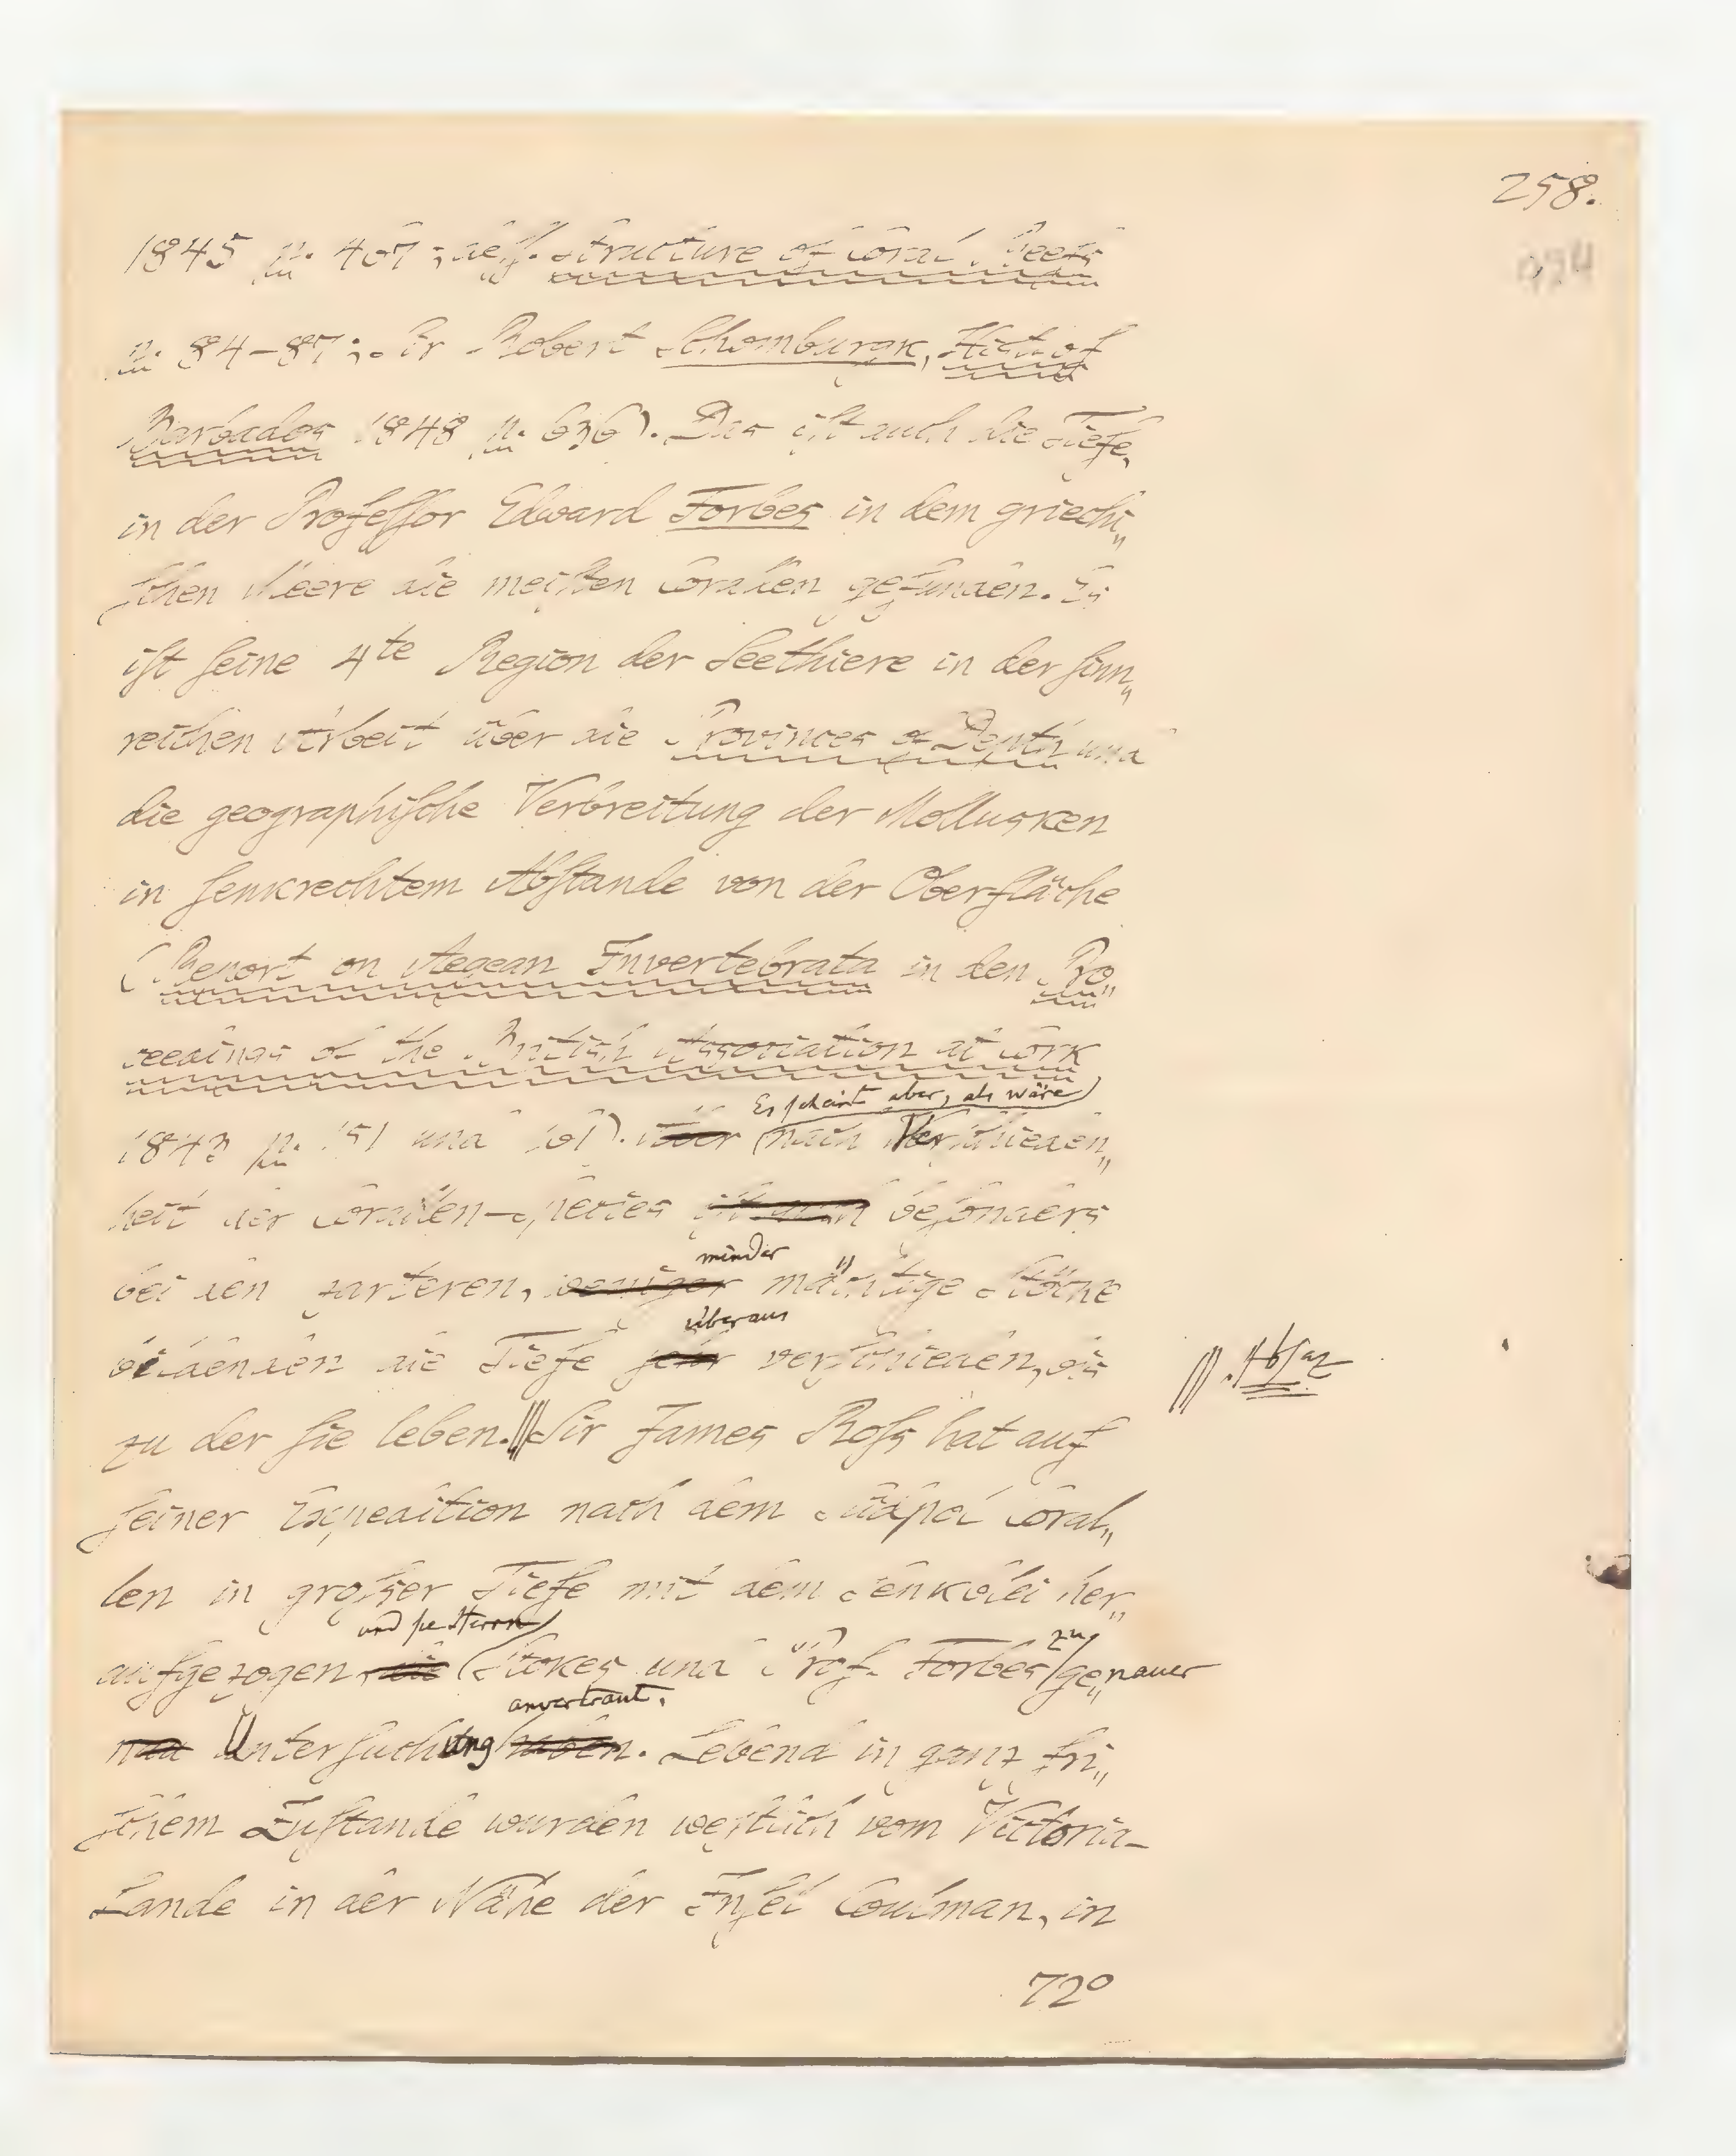 258.
1845 p. 467; deſſ. Structure of Coral Reefs
p. 84–87; Sir Robert Schomburgk, Hist. of
Barbados 1848 p. 636). Das iſt auch die Tiefe,
in der Profeſſor Edward Forbes in dem griechi„
ſchen Meere die meiſten Corallen gefunden. Es
iſt ſeine 4te Region der Seethiere in der ſinn„
reichen Arbeit über die Provinces of Depth und
die geographiſche Verbreitung der Mollusken
in ſenkrechtem Abſtande von der Oberfläche
(Report on Aegean Invertebrata in den Pro„
ceedings of the British Association at Cork
Es ſcheint aber, als wäre
1843 p. 151 und 161). nach Verſchieden„
heit der Corallen-Species beſonders
minder
bei den zarteren, weniger mächtige Stöcke
überaus
bildenden die Tiefe ſehr verſchieden, bis
///. Abſaz
zu der ſie leben./// Sir James Roſs hat auf
ſeiner Expedition nach dem Südpol Coral„
len in groſser Tiefe mit dem Senkblei her„
und ſie Herrn
zu
aufgezogen, die Stokes und Prof. Forbes ge„nauer
anvertraut.
Unterſuchung haben. Lebend in ganz fri„
ſchem Zuſtande wurden weſtlich vom Victoria-
Lande in der Nähe der Inſel Coulman, in
72°